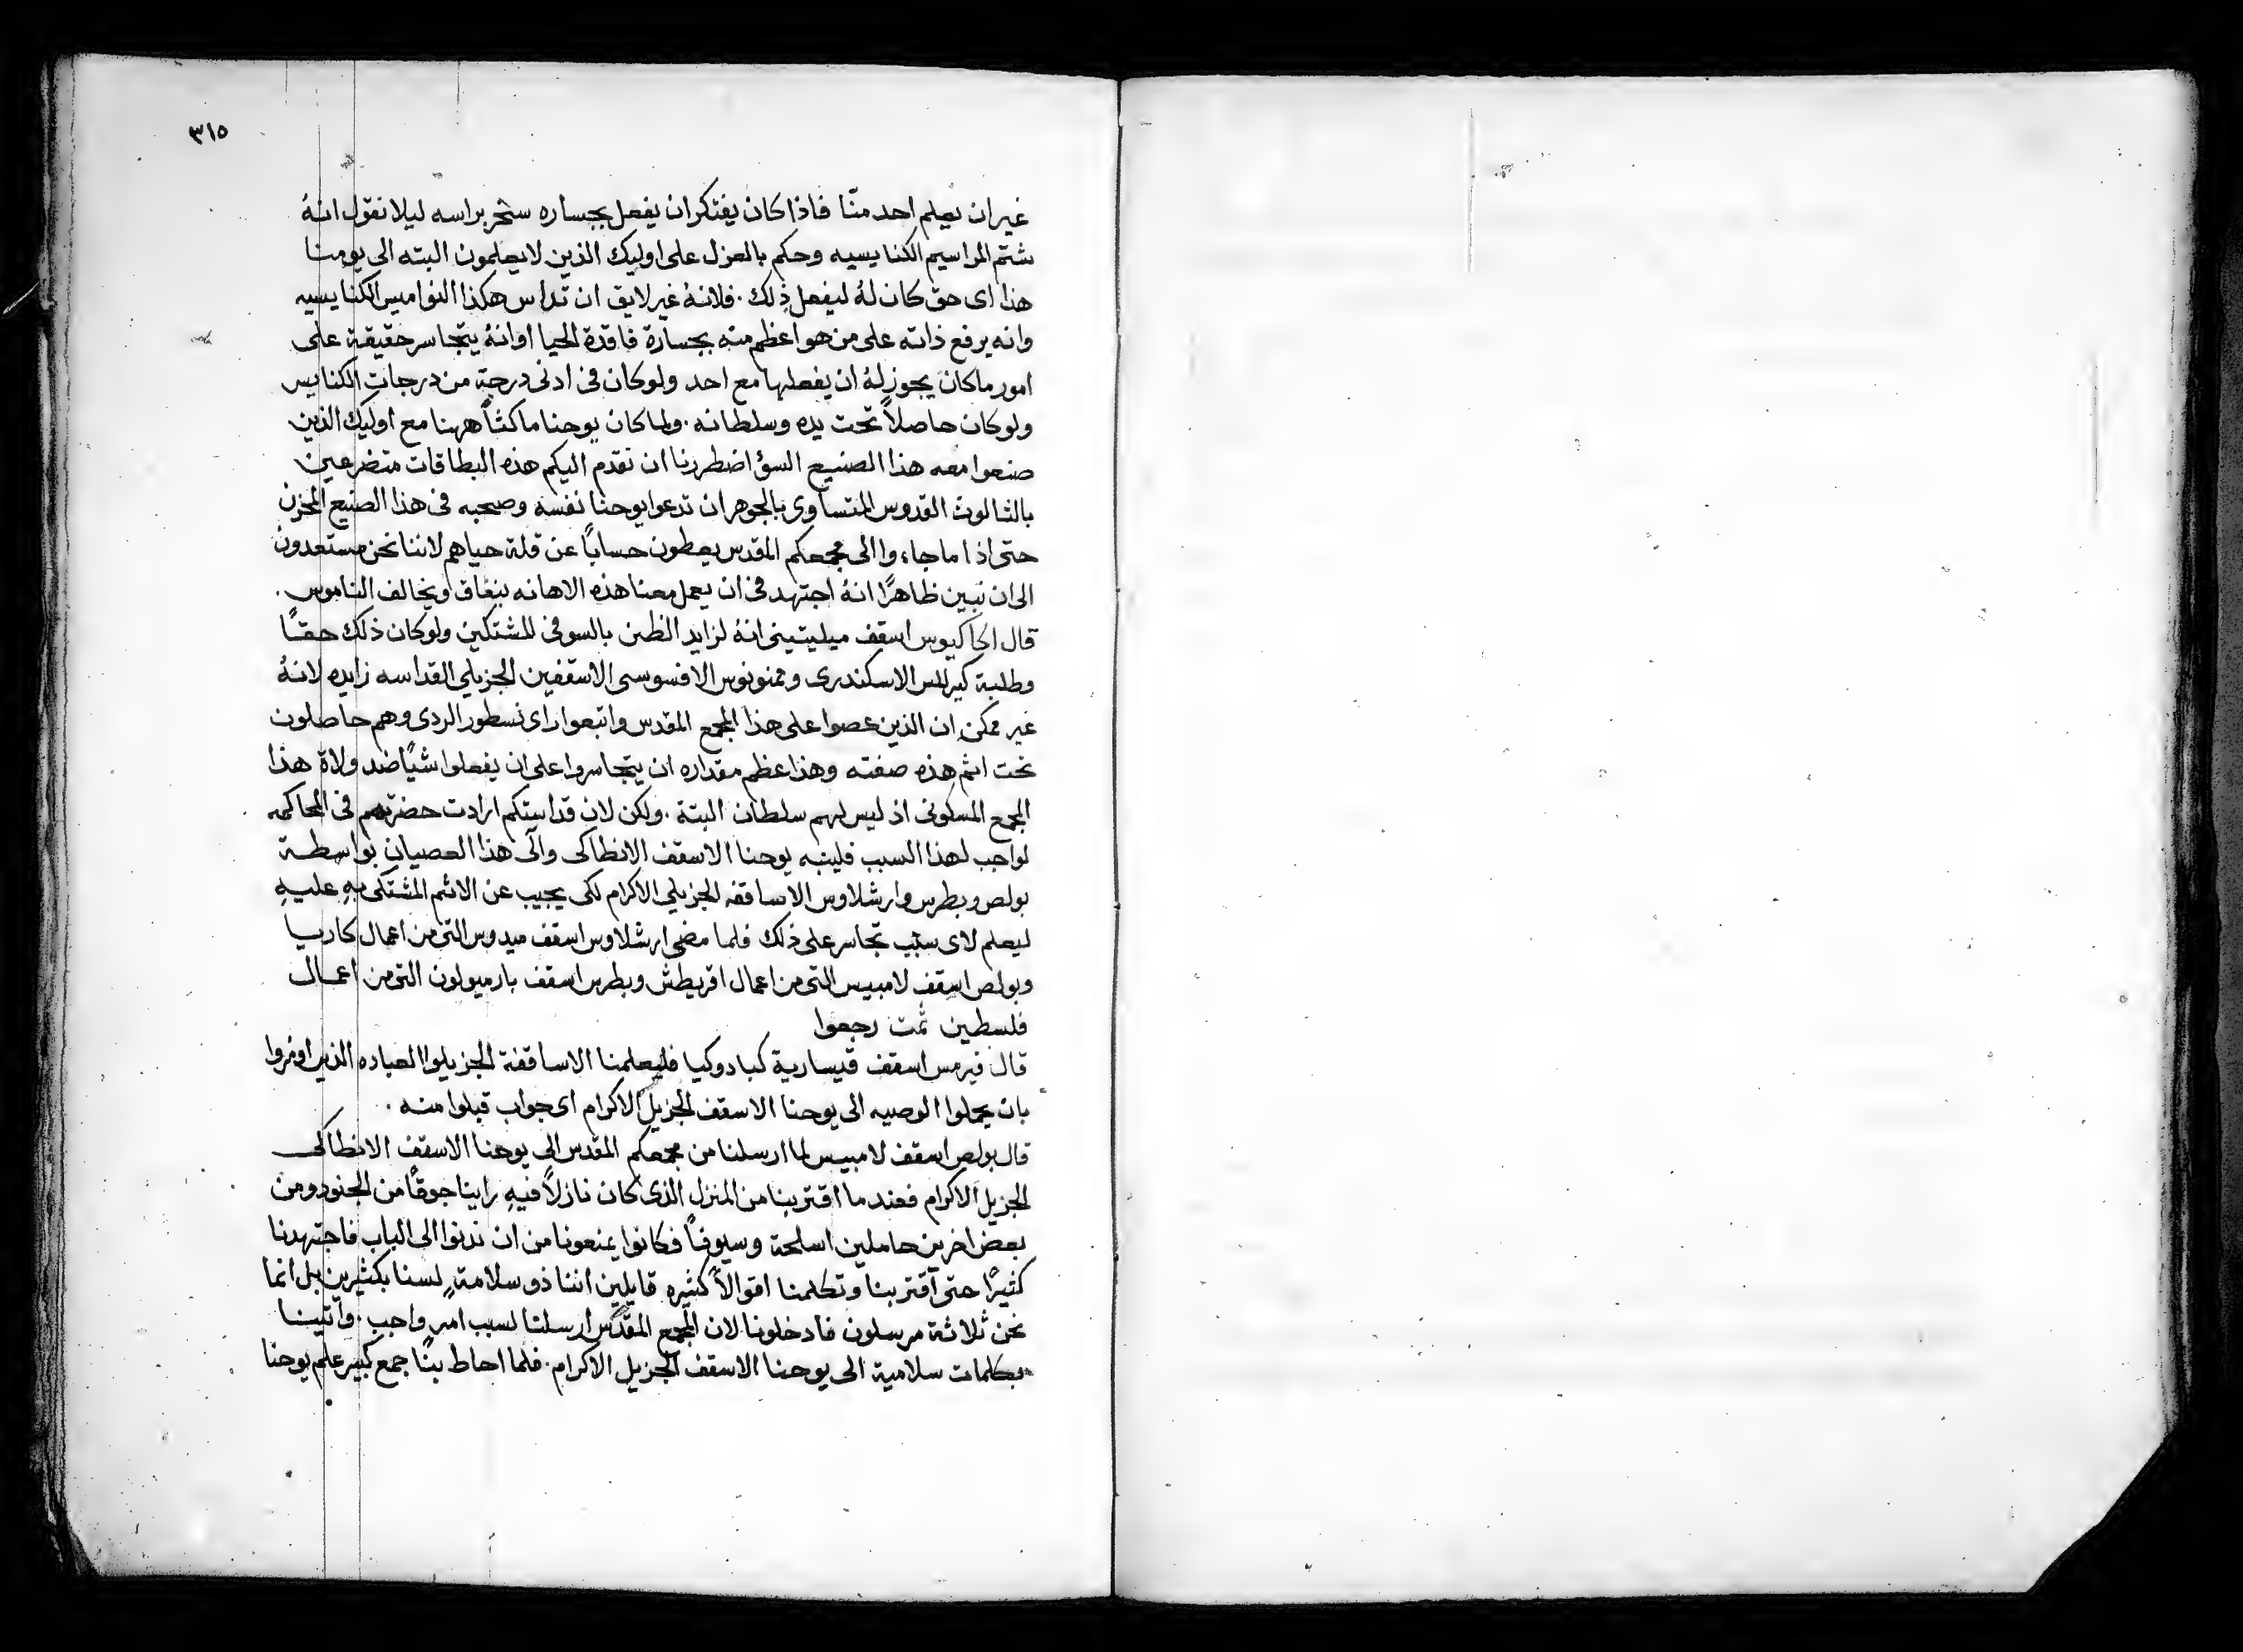 ٣١٥
غير ان يعلم احد منّا فاذا كان يفتكر ان يفعل بجساره سخر براسه ليلا نقول انهُ
شتم المراسيم الكنايسيه وحكم بالعزل على اوليك الذين لا يعلمون البته الى يومنا
هذا اى حق كان لهُ ليفعل ذلك . فلانهُ غير لايق ان تداس هكذا النواميس الكنايسيه
وانه يرفع ذاته على من هو اعظم منه بجسارة فاقدة الحيا او انهُ يتجاسر حقيقة على
امور ما كان يجوز لهُ ان يفعلها مع احد ولو كان فى ادنى درجة من درجات الكنايس
ولو كان حاصلاً تحت يده وسلطانه . ولما كان يوحنا ماكثاً ههنا مع اوليك الذين
صنعوا معه هذا الصنيع السؤ اضطررنا ان نقدم اليكم هذه البطاقات متضرعين
بالثالوث القدوس المتساوى بالجوهر ان تدعوا يوحنا نفسه وصحبه فى هذا الصنيع المحزن
حتى اذا ما جاءوا الى مجمعكم المقدس يعطون حساباً عن قلة حياهم لاننا نحن مستعدون
الى ان نبين ظاهرًا انهُ اجتهد فى ان يعمل معنا هذه الاهانه بنفاق ويخالف الناموس .
قال اكاكيوس اسقف ميليتينى انهُ لزايد الظن بالسو فى المشتكين ولو كان ذلك حقاً
وطلبة كيرللس الاسكندرى وممنونوس الافسوسى الاسقفين الجزيلي القداسه زايده لانهُ
غير ممكن ان الذين عصوا على هذا المجمع المقدس واتبعوا راى نسطور الردى وهم حاصلون
تحت اثم هذه صفته وهذا عظم مقداره ان يتجاسروا على ان يفعلوا شيًا ضد ولاة هذا
المجمع المسكونى اذ ليس لهم سلطان البتة . ولكن لان قداستكم ارادت حضرتهم فى المحاكمه
لواجب لهذا السبب فلينبه يوحنا الاسقف الانطاكى والى هذا العصيان بواسطة
بولص وبطرس وارشلاوس الاساقفه الجزيلي الاكرام لكى يجيب عن الاثم المشتكى بهِ عليهِ
ليعلم لاى سبب تجاسر على ذلك فلما مضى ارشلاوس اسقف ميدوس التى من اعمال كاريا
وبولص اسقف لامبيس التى من اعمال اقريطش وبطرس اسقف بارميولون التى من اعمال
فلسطين ثمت رجعوا
قال فيرمس اسقف قيسارية كبادوكيا فليعلمنا الاساقفة الجزيلوا العباده الذين اومروا
بان يحملوا الوصيه الى يوحنا الاسقف الجزيل الاكرام اى جواب قبلوا منه .
قال بولص اسقف لامبيس لما ارسلنا من مجمعكم المقدس الى يوحنا الاسقف الانطاكى
الجزيل الاكرام فعندما اقتربنا من المنزل الذى كان نازلاً فيهِ راينا جوقاً من الجنود ومن
بعض اخرين حاملين اسلحة وسيوفاً فكانوا يمنعونا من ان ندنوا الى الباب فاجتهدنا
كثيرًا حتى اقتربنا وتكلمنا اقوالاً كثيره قايلين اننا ذو سلامةٍ لسنا بكثيرين بل انما
نحن ثلاثة مرسلون فادخلونا لان المجمع المقدس ارسلنا لسبب امرٍ واجب . واتينا
بكلمات سلامية الى يوحنا الاسقف الجزيل الاكرام . فلما احاط بنا جمع كبير علم يوحنا